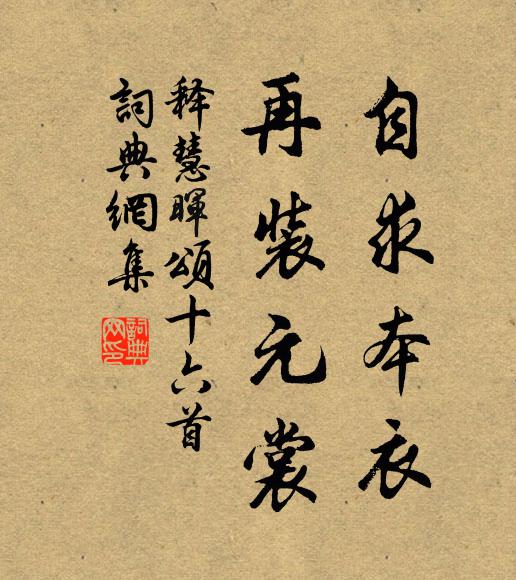 自求本衣
再裝元裳
釋慧暉頌十六首
詞典網集
詞典網印